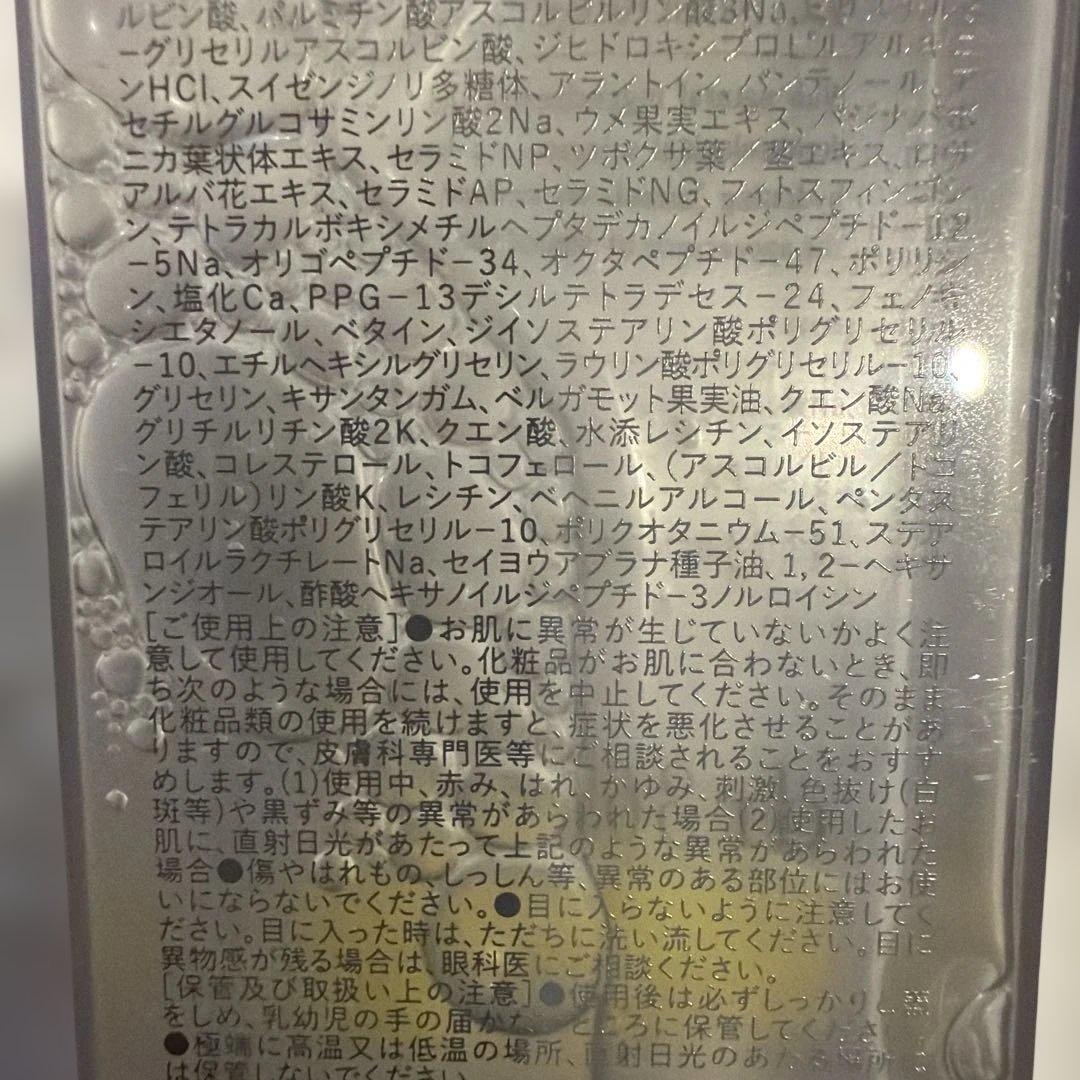 ルビン酸、パルミチン酸アスコルビルリン酸3Na、
-グリセリルアスコルビン酸、ジヒドロキシプロピルアルギニ
ンHCl、スイゼンジノリ多糖体、アラントイン、パンテノール、ア
セチルグルコサミンリン酸2Na、ウメ果実エキス、パジナパボ
ニカ葉状体エキス、セラミドNP、ツボクサ葉／茎エキス、ロサ
アルバ花エキス、セラミドAP、セラミドNG、フィトスフィンゴシ
ン、テトラカルボキシメチルヘプタデカノイルジペプチド-12
-5Na、オリゴペプチド-34、オクタペプチド-47、ポリリシ
ン、塩化Ca、PPG-13デシルテトラデセス-24、フェノキ
シエタノール、ベタイン、ジイソステアリン酸ポリグリセリル
-10、エチルヘキシルグリセリン、ラウリン酸ポリグリセリル-10、
グリセリン、キサンタンガム、ベルガモット果実油、クエン酸Na、
グリチルリチン酸2K、クエン酸、水添レシチン、イソステアリ
ン酸、コレステロール、トコフェロール、(アスコルビル／トコ
フェリル)リン酸K、レシチン、ベヘニルアルコール、ペンタス
テアリン酸ポリグリセリル-10、ポリクオタニウム-51、ステア
ロイルラクチレートNa、セイヨウアブラナ種子油、1,2-ヘキサ
ンジオール、酢酸ヘキサノイルジペプチド-3ノルロイシン
[ご使用上の注意]●お肌に異常が生じていないかよく注
意して使用してください。化粧品がお肌に合わないとき、即
ち次のような場合には、使用を中止してください。そのまま
化粧品類の使用を続けますと、症状を悪化させることがあ
りますので、皮膚科専門医等にご相談されることをおすす
めします。(1)使用中、赤み、はれ、かゆみ、刺激、色抜け(白
斑等)や黒ずみ等の異常があらわれた場合(2)使用したお
肌に、直射日光があたって上記のような異常があらわれた
場合●傷やはれもの、しっしん等、異常のある部位にはお使
いにならないでください。●目に入らないように注意してく
ださい。目に入った時は、ただちに洗い流してください。目に
異物感が残る場合は、眼科医にご相談ください。
[保管及び取扱い上の注意]●使用後は必ずしっかり
をしめ、乳幼児の手の届かないところに保管してくださ
●極端に高温又は低温の場所、直射日光のあたる場所
は保管しないでください。